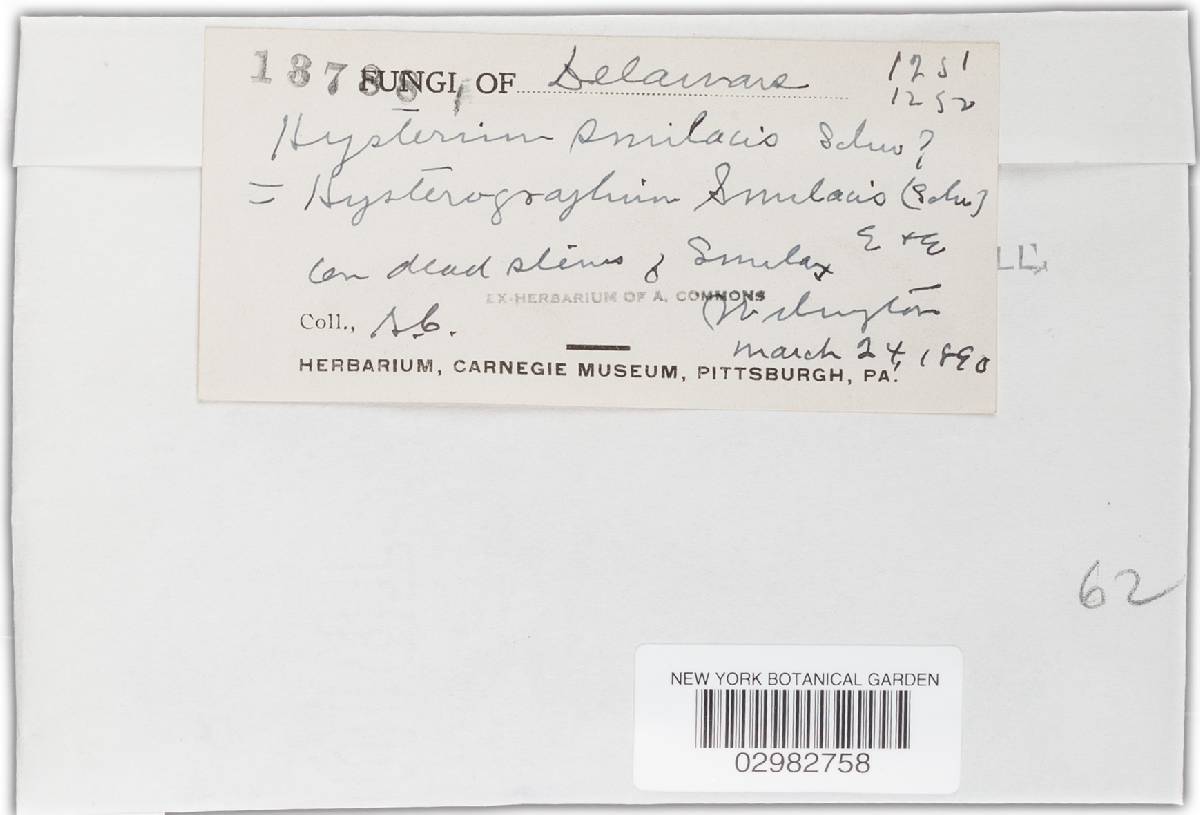 FUNGI, OF Delaware
1251
1252
Hysterium Smilacis Schw?
= Hysterographium Smilacis (Schw)
E & E
on dead stems of Smilax
EX-HERBARIUM OF A. COMMONS
Wilmington
Coll.,
March 24, 1890
HERBARIUM, CARNEGIE MUSEUM, PITTSBURGH, PA.
62
NEW YORK BOTANICAL GARDEN
02982758